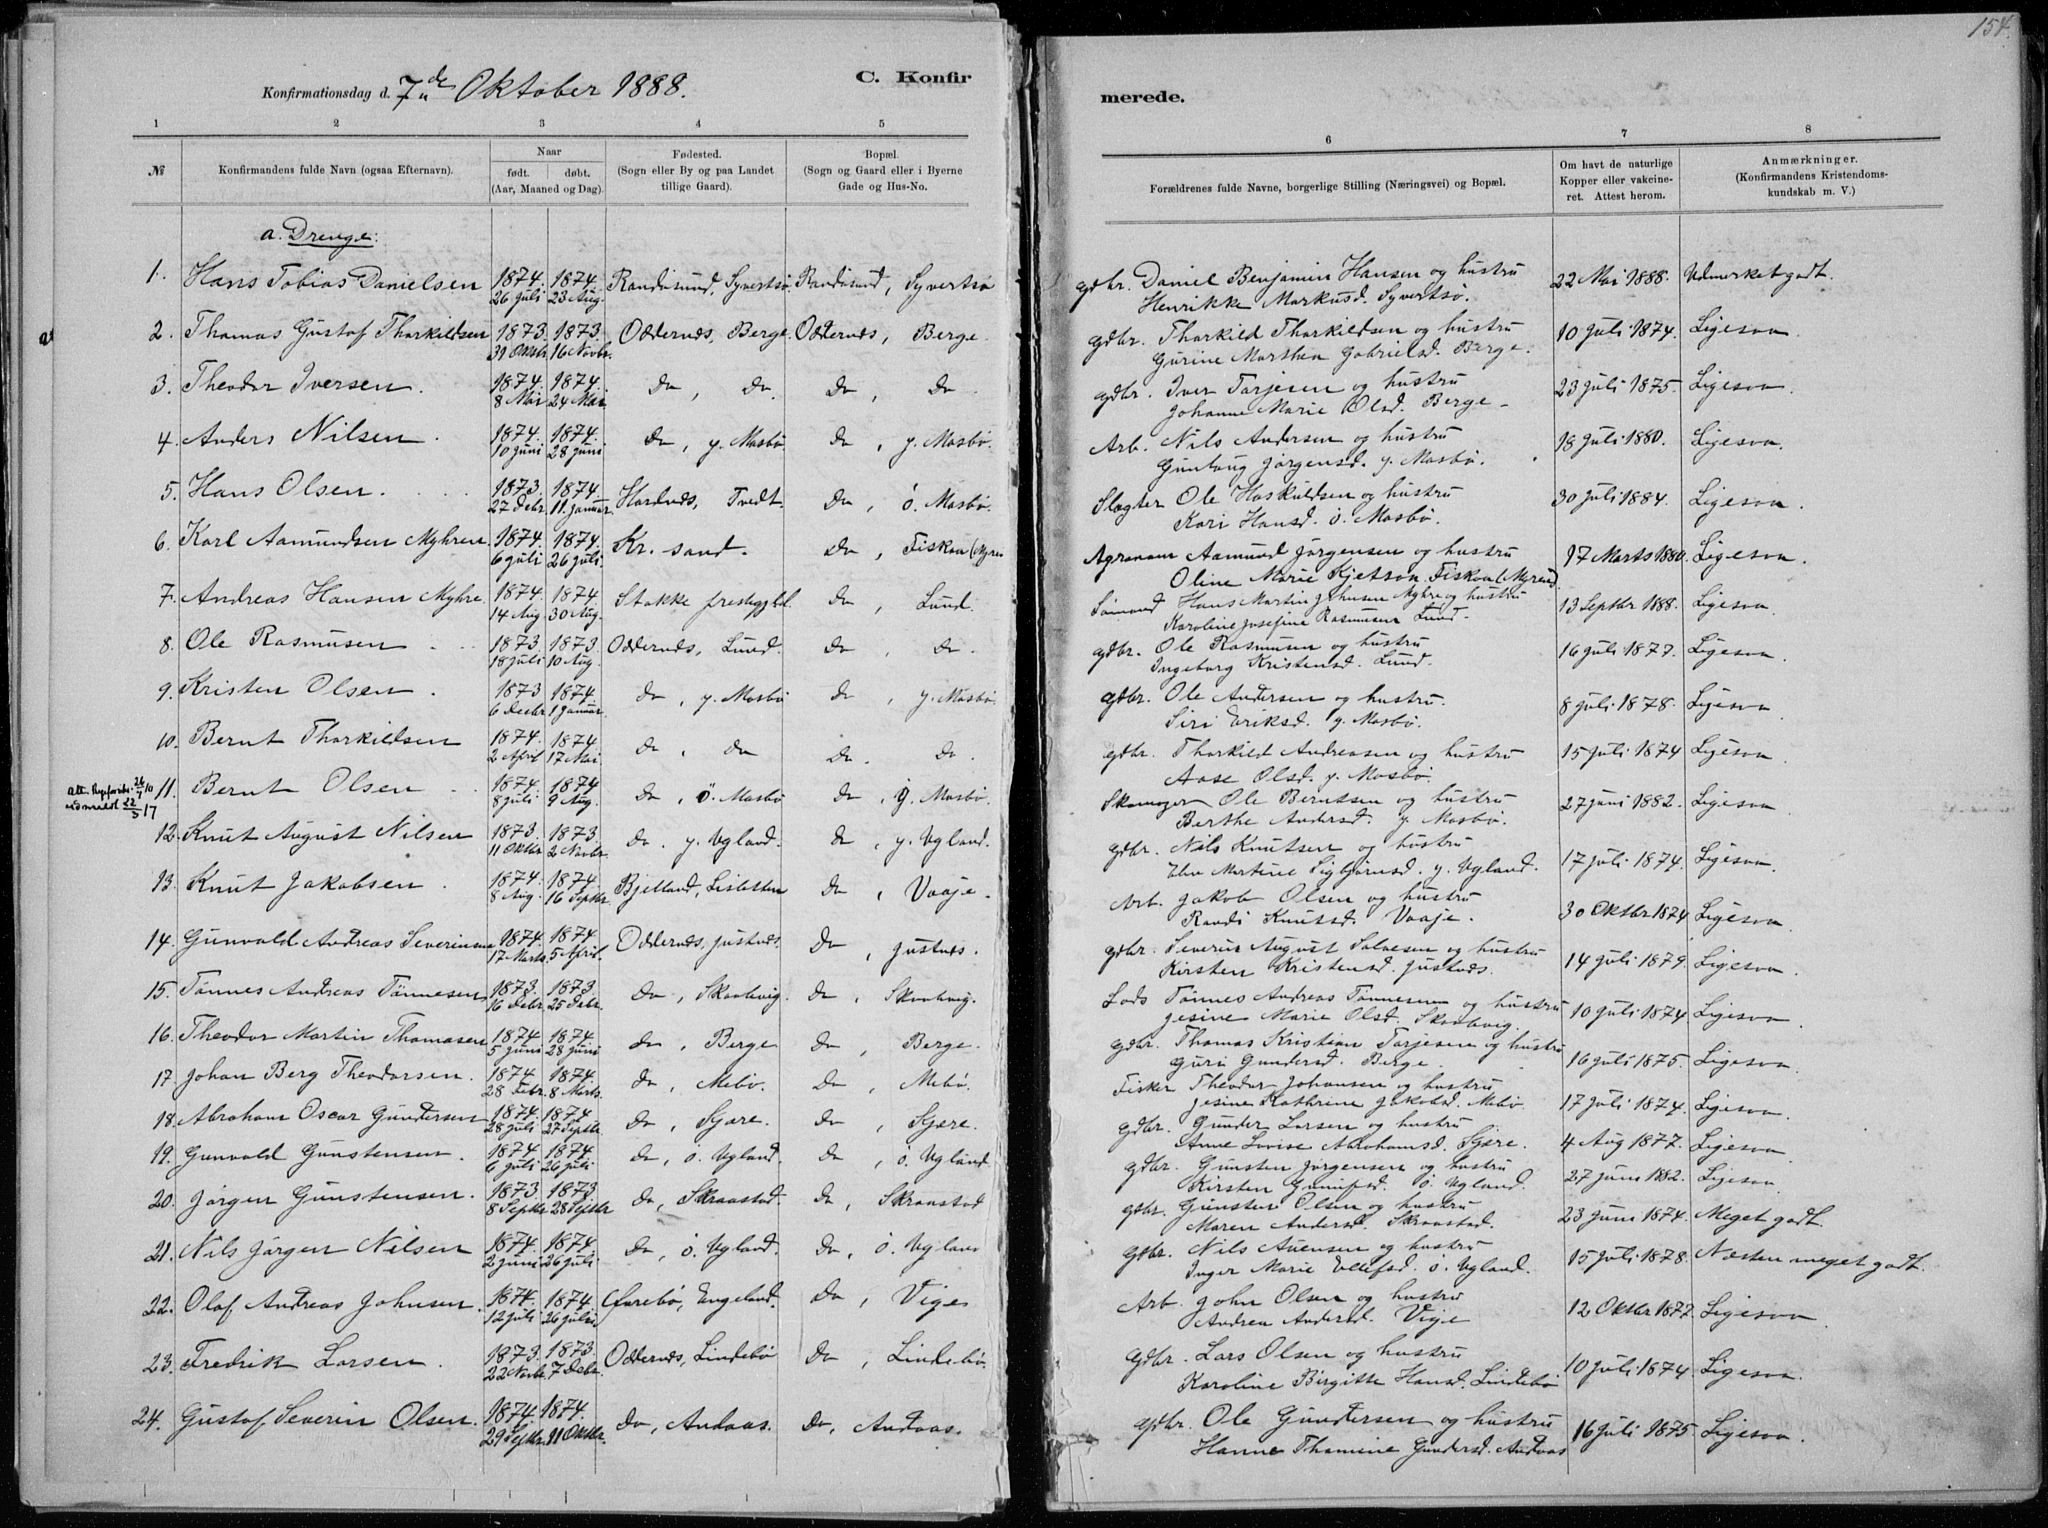 154.
Konfirmationsdag d. 7de Oktober 1888.
C. Konfir
merede.
1 2 3 4 5
6 7 8
№
Konfirmandens fulde Navn (ogsaa Efternavn).
Naar
født. døbt.
(Aar, Maaned og Dag).
Fødested.
(Sogn eller By og paa Landet
tillige Gaard).
Bopæl.
(Sogn og Gaard eller i Byerne
Gade og Hus-No.
Forældrenes fulde Navne, borgerlige Stilling (Næringsvei) og Bopæl.
Om havt de naturlige
Kopper eller vakcine-
ret. Attest herom.
Anmærkninger.
(Konfirmandens Kristendoms-
kundskab m. V.)
a. Drenge:
1. Hans Tobias Danielsen 1874. 1874. Randøsund, Syvertsø. Randøsund, Syvertsø
26 Juli 23 Aug.
gdbr. Daniel Benjamin Hansen og hustru 22 Mai 1888. Udmerket godt.
Henrikke Markusd. Syvertsø.
2. Thomas Gustof Thorkildsen 1873. 1873. Oddernes, Berge. Oddernes, Berge.
31 Oktbr. 16 Novbr.
gdbr. Thorkild Thorkildsen og hustru 10 Juli 1874. Ligesaa.
Gurine Marthea Gabrielsd. Berge.
3. Theodor Iversen. 1874. 1874. Do, Do. Do, Do.
8 Mai 24 Mai.
gdbr. Iver Tarjesen og hustru 23 Juli 1875. Ligesaa.
Johanne Marie Olsd. Berge.
4. Anders Nilsen. 1874. 1874. Do, y. Mosbø Do, y. Mosbø.
10 Juni 28 Juni
Arb. Nils Andersen og hustru 18 Juli 1880. Ligesaa.
Gunlaug Jørgensd. y. Mosbø.
5. Hans Olsen. 1873. 1874. Hordnes, Tvedt. Do, ö. Mosbø.
27 Debr. 11 Januar.
Slagter Ole Haskuldsen og hustru 30 Juli 1884. Ligesaa.
Kari Hansd. ö. Mosbø.
6. Karl Aamundsen Myhren. 1874. 1874. Kr. sand. Do, Fiskaa (Myren
6 Juli 26 Juli.
Agronom Aamund Jørgensen og hustru 17 Marts 1880. Ligesaa.
Oline Marie Kjetson. Fiskaa (Myren).
7. Andreas Hansen Myhre. 1874 1874 Stokke prestegjeld. Do, Lund.
14 Aug. 30 Aug.
Sömand Hans Martin Johnsen Myhre og hustru 13 Septbr 1888. Ligesaa.
Karoline Josefine Rasmusen Lund.
8. Ole Rasmusen 1873. 1873. Oddernes, Lund. Do, Do.
18 Juli 10 Aug.
gdbr. Ole Rasmusen og hustru 16 Juli 1877. Ligesaa.
Ingeborg Kristensd. Lund.
9. Kristen Olsen. 1873 1874 Do, y. Mosbø Do, y. Mosbø.
6 Decbr 1 Januar.
gdbr. Ole Andersen og hustru. 8 Juli 1878. Ligesaa.
Siri Eriksd. y. Mosbø.
10. Bernt Thorkildsen 1874. 1874 Do, Do Do. Do.
2 April 17 Mai.
gdbr. Thorkild Andreasen og hustru 15 Juli 1874 Ligesaa.
Aase Olsd. y. Mosbø.
11. Bernt Olsen 1874 1874 Do, ö. Mosbø Do, y. Mosbø.
8 Juli 9 Aug.
Skomager Ole Berntsen og hustru 27 Juni 1882. Ligesaa.
Berthe Andersd. y. Mosbø.
12. Knut August Nilsen 1873. 1873. Do. y. Vgland. Do, y. Vgland.
11 Oktbr. 2 Novbr.
gdbr. Nils Knutsen og hustru 17 Juli 1874. Ligesaa.
Martine Sigbjørnsd. y. Vgland.
13. Knut Jakobsen. 1874. 1874. Bjelland, Do, Vaaje.
8 Aug. 16 Septbr.
Arb. Jakob Olsen og hustru 30 Oktbr 1874 Ligesaa.
Randi Knutsd. Vaaje.
14. Gunvald Andreas Severinsen 1874. 1874. Oddernes, Justnes. Do, Justnes.
17 Marts. 5 April.
gdbr. Severin August Salvesen og hustru 14 Juli 1879. Ligesaa.
Kirsten Kristensd. Justnes.
15. Tønnes Andreas Tønnesen 1873. 1873. Do, Skaalevig. Do, Skaalevig.
16 Debr. 25 Debr.
Lods Tønnes Andreas Tønnesen og hustru 10 Juli 1874 Ligesaa.
Jesine Marie Olsd. Skaalevig.
16. Theodor Martin Thomasen 1874 1874. Do, Berge Do, Berge.
5 Juni 28 Juni
gdbr. Thomas Kristian Tarjesen og hustru 16 Juli 1875. Ligesaa.
Guri Gundersd. Berge.
17 Johan Berg Theodorsen. 1874 1874. Do, Mebø. Do, Mebø.
28 Febr. 8 Marts.
Fisker Theodor Johansen og hustru 17 Juli 1874. Ligesaa.
Jesine Kathrine Jakobsd. Mebø
18. Abraham Oscar Gundersen 1874. 1874 Do, Sjøre. Do, Sjøre.
28 Juli 27 Septbr.
gdbr. Gunder Larsen og hustru 4 Aug 1877. Ligesaa.
Anne Lovise Abrahamsd. Sjøre.
19. Gunvald Gunstensen. 1874 1874 Do, ö. Vgland. Do, ö. Vgland
6 Juli 26 Juli
gdbr. Gunsten Jørgensen og hustru 27 Juni 1882. Ligesaa.
Kirsten ö. Vgland
20. Jørgen Gunstensen. 1873. 1873. Do, Skraastad. Do, Skraastad
8 Septbr 28 Septbr
gdbr. Gunsten Olsen og hustru 23 Juni 1874. Meget godt.
Maren Andersd. Skraastad.
21. Nils Jørgen Nilsen 1874. 1874. Do, ö. Vgland. Do, ö. Vgland
2 Juni 26 Juli.
gdbr. Nils Auensen og hustru 15 Juli 1878. Næsten meget godt.
Inger Marie Ellefsd. ö. Vgland.
22. Olaf Andreas Johnsen. 1874. 1874 Øvrebø, Engeland. Do, Vige
12 Juli 26 Juli
Arb. John Olsen og hustru 12 Oktbr 1877. Ligesaa.
Andrea Andersd. Vige
23. Fredrik Larsen. 1873. 1873. Oddernes, Lindebø Do, Lindebø.
22 Novbr. 7 Debr.
gdbr. Lars Olsen og hustru 10 Juli 1874. Ligesaa.
Karoline Birgitte Hansd. Lindebø
24. Gustof Severin Olsen. 1874. 1874. Do, Andaas. Do, Andaas.
29 Septbr. 11 Oktbr.
gdbr. Ole Gundersen og hustru 16 Juli 1875 Ligesaa.
Hanne Thomine Gundersd. Andaas